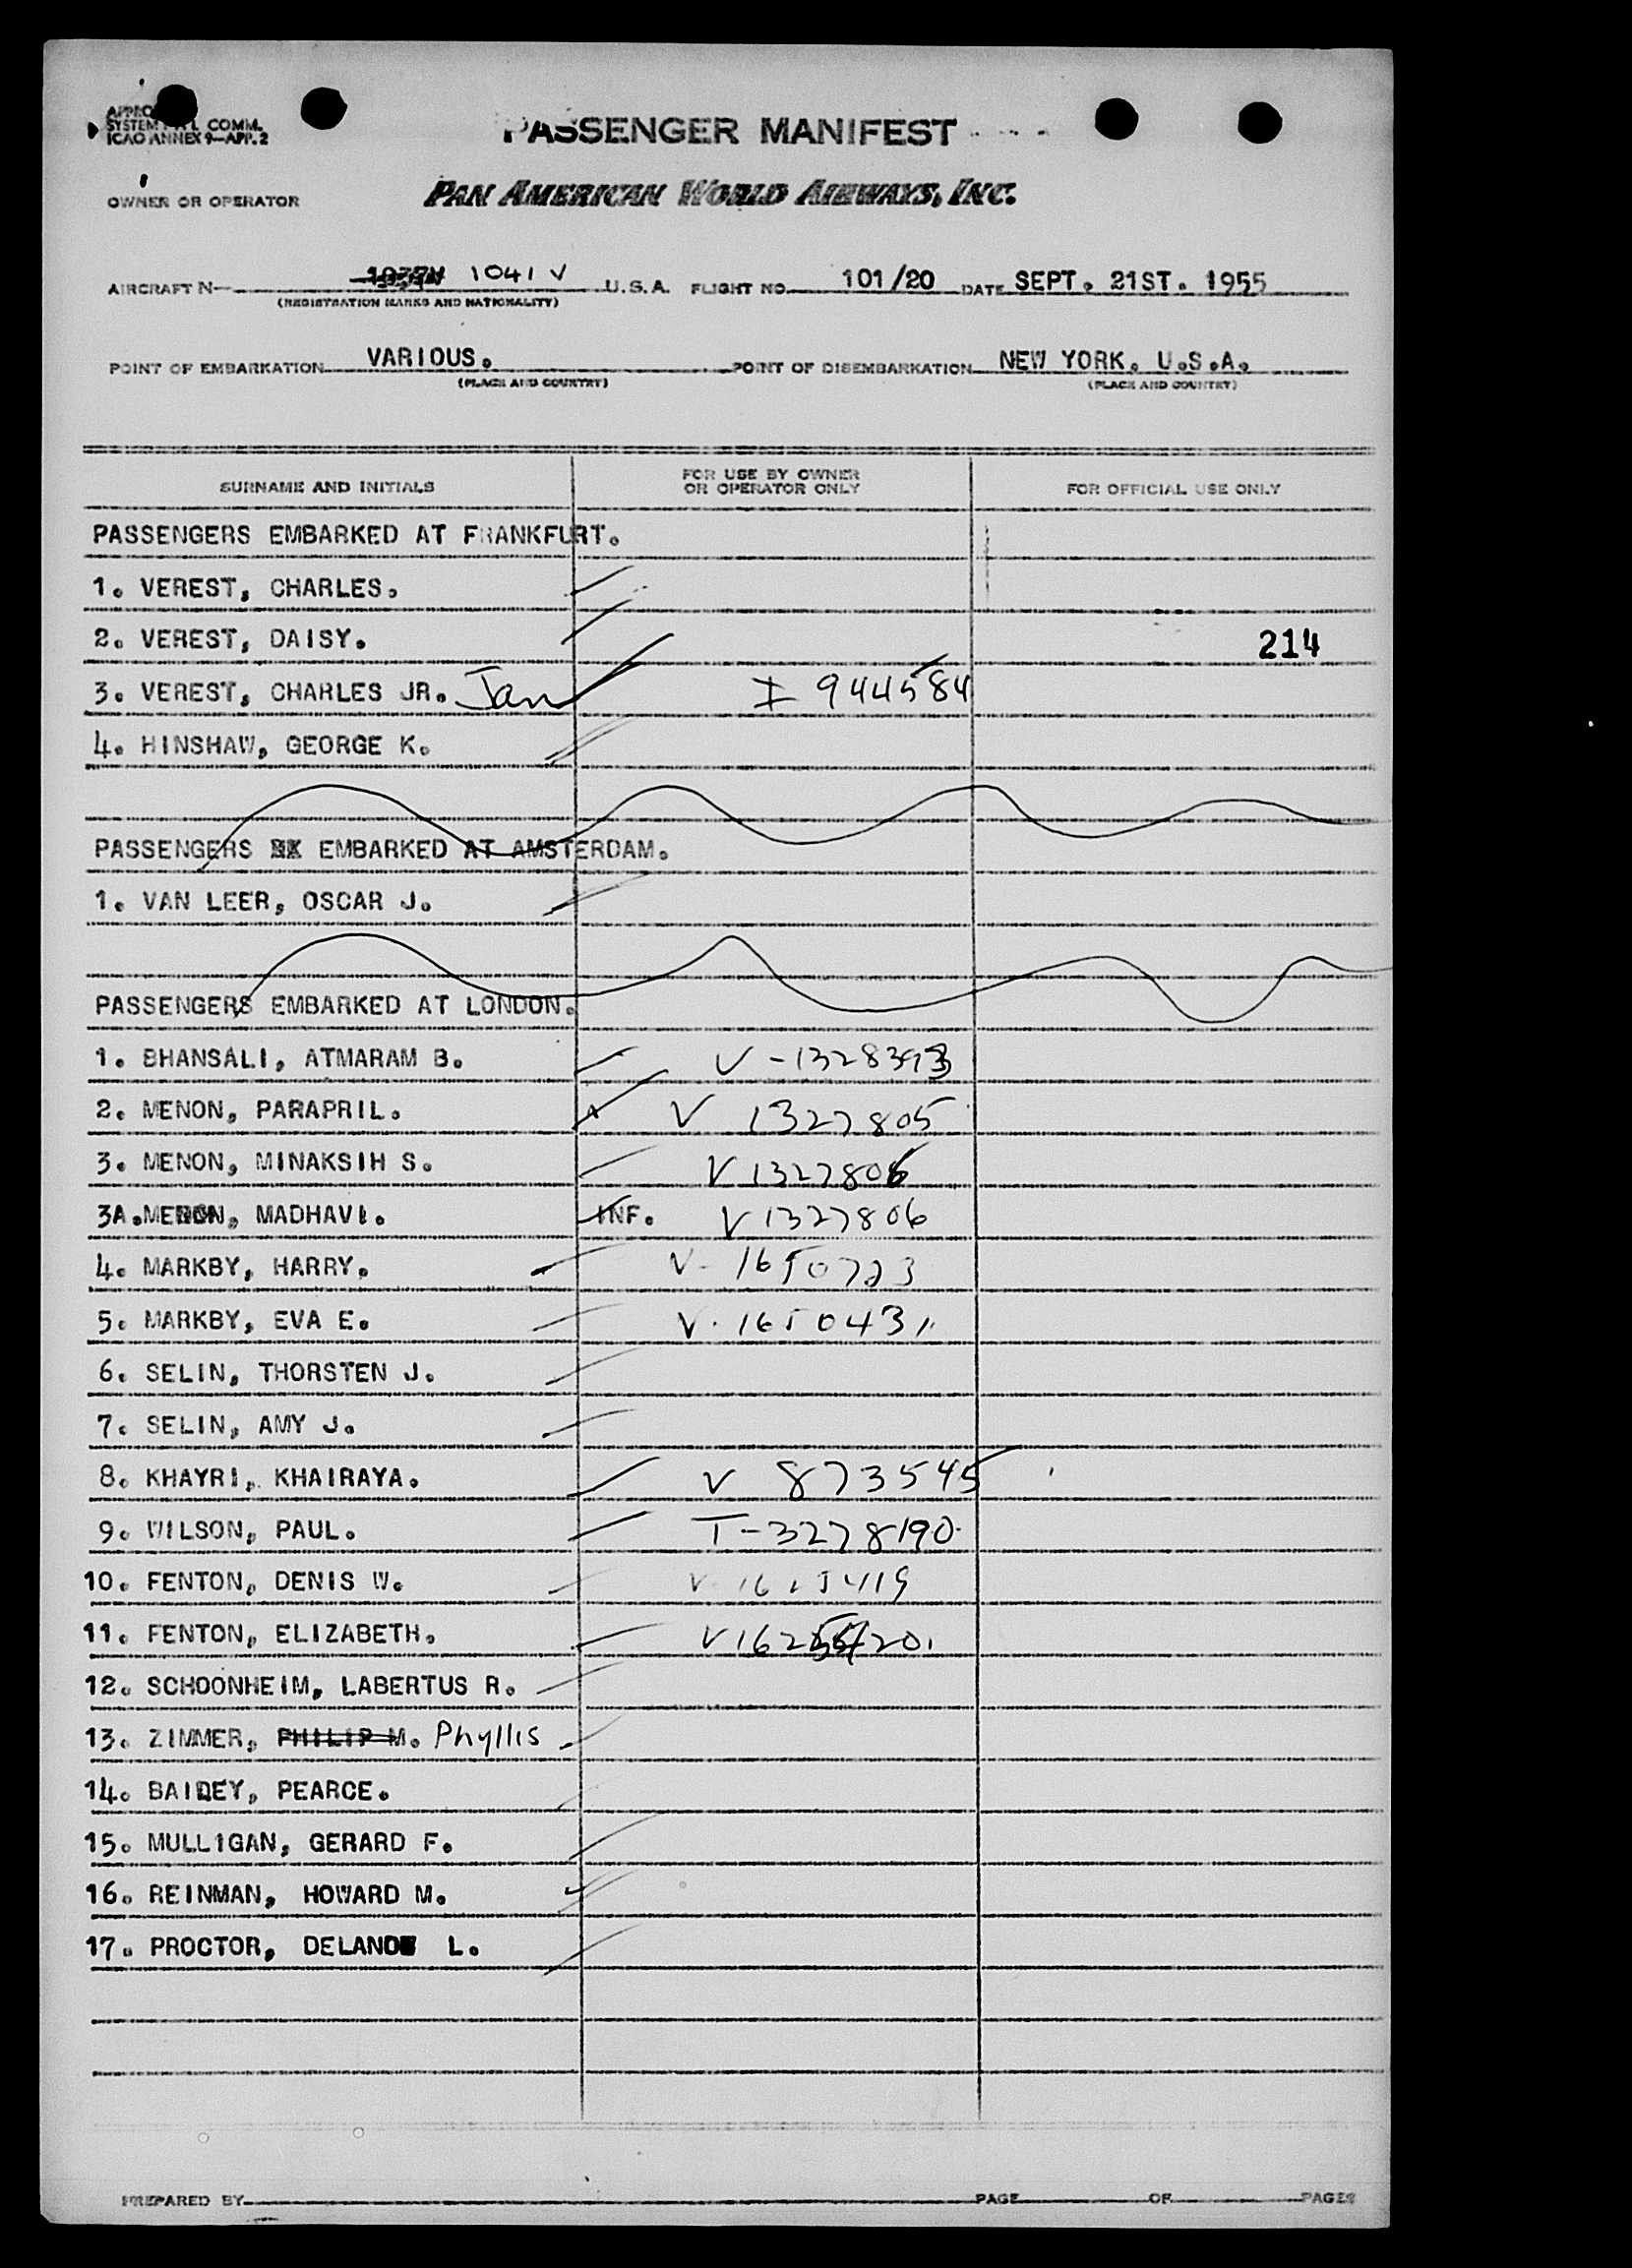 SYSTEM COMM.
ICAO ANNEX 9—APP. 2
PASSENGER MANIFEST
OWNER OR OPERATOR PAN AMERICAN WORLD AIRWAYS, INC.
AIRCRAFT N— 1041 V U.S.A. FLIGHT NO. 101/20 DATE SEPT. 21ST. 1955
(REGISTRATION MARKS AND NATIONALITY)
POINT OF EMBARKATION VARIOUS. POINT OF DISEMBARKATION NEW YORK. U.S.A.
(PLACE AND COUNTRY) (PLACE AND COUNTRY)
SURNAME AND INITIALS FOR USE BY OWNER OR OPERATOR ONLY FOR OFFICIAL USE ONLY
PASSENGERS EMBARKED AT FRANKFURT.
1. VEREST, CHARLES.
2. VEREST, DAISY. 214
3. VEREST, CHARLES JR. Jan I 944584
4. HINSHAW, GEORGE K.
PASSENGERS EMBARKED AT AMSTERDAM.
1. VAN LEER, OSCAR J.
PASSENGERS EMBARKED AT LONDON.
1. BHANSALI, ATMARAM B. V-1328393
2. MENON, PARAPRIL. V 1327805
3. MENON, MINAKSIH S. V 1327806
3A. MENON, MADHAVI. INF. V 1327806
4. MARKBY, HARRY. V- 1650723
5. MARKBY, EVA E. V. 1650431
6. SELIN, THORSTEN J.
7. SELIN, AMY J.
8. KHAYRI, KHAIRAYA. V 873545
9. WILSON, PAUL. T-3278190
10. FENTON, DENIS W.
11. FENTON, ELIZABETH.
12. SCHOONHEIM, LABERTUS R.
13. ZIMMER, PHILIP M. Phyllis
14. BAIDEY, PEARCE.
15. MULLIGAN, GERARD F.
16. REINMAN, HOWARD M.
17. PROCTOR, L.
PREPARED BY PAGE OF PAGES